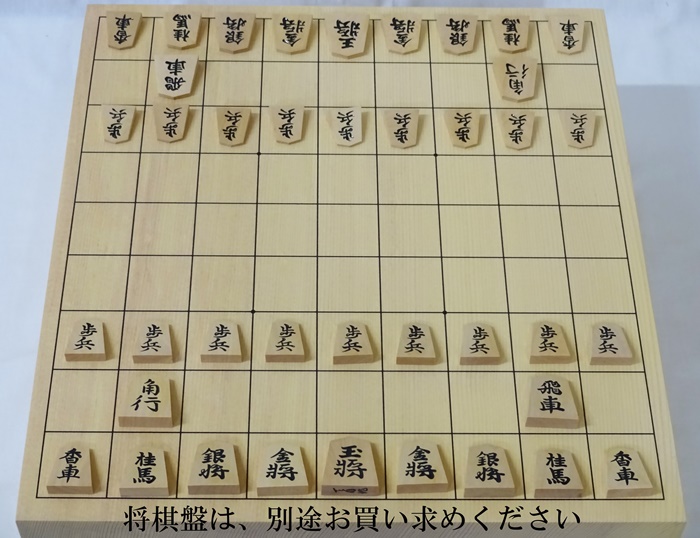 香車 桂馬 銀将 金将 王将 金将 銀将 桂馬 香車
飛車 角行
歩兵 歩兵 歩兵 歩兵 歩兵 歩兵 歩兵 歩兵 歩兵
歩兵 歩兵 歩兵 歩兵 歩兵 歩兵 歩兵 歩兵 歩兵
角行 飛車
香車 桂馬 銀将 金将 玉将 金将 銀将 桂馬 香車
将棋盤は、別途お買い求めください